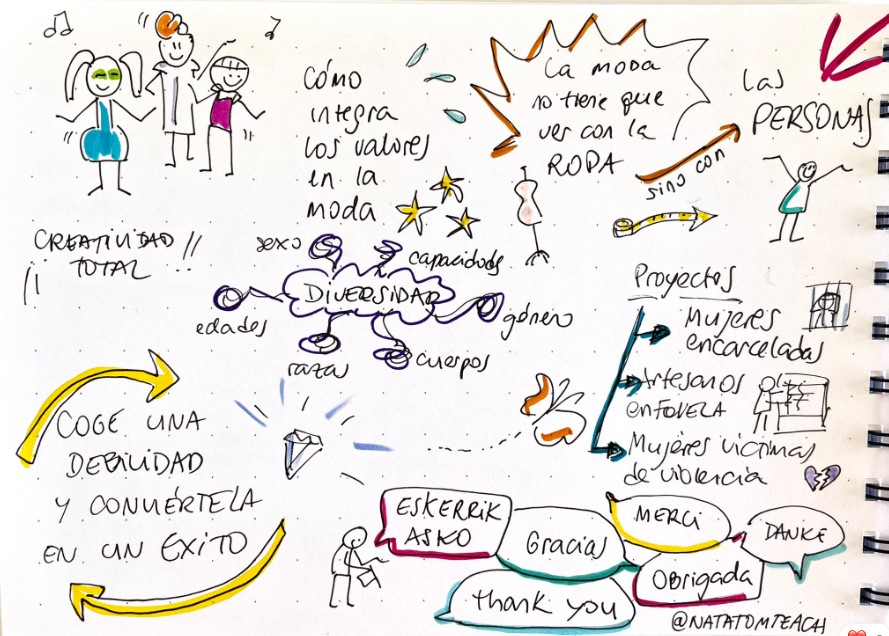 CÓMO
integra
los valores
en la
moda
La moda
no tiene que
ver con la
ROPA
sino con
las
PERSONAS
CREATIVIDAD
TOTAL !!
DIVERSIDAD
sexo
capacidades
edades
género
razas
cuerpos
Proyectos
Mujeres
encarceladas
Artesanos
Mujeres víctimas
de violencia
COGE UNA
DEBILIDAD
Y CONVIÉRTELA
EN UN ÉXITO
ESKERRIK
ASKO
Gracias
MERCI
DANKE
Obrigada
Thank you
@NATATOMTEACH